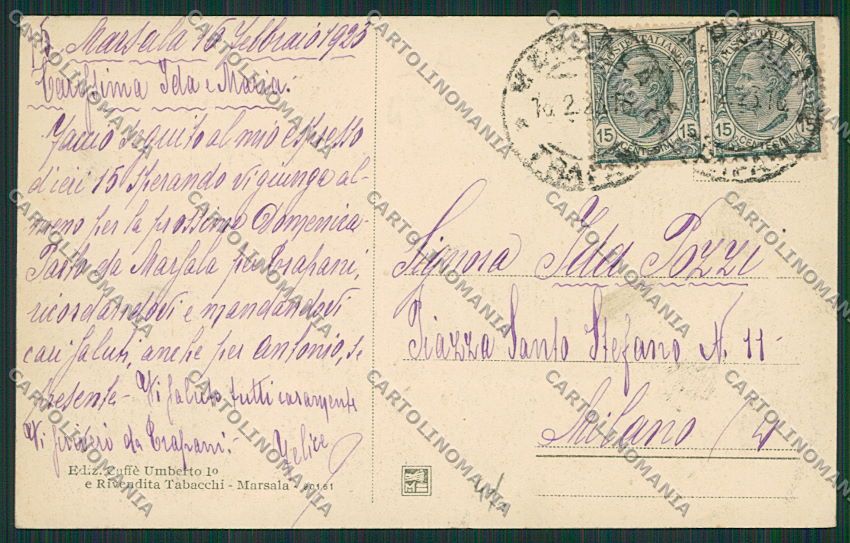 Marsala 15 febbraio 1925
Carissima Ida e Maria.
Faccio seguito al mio espresso
di ieri 15 sperando vi giunga al-
meno per la prossima Domenica.
Parto da Marsala per Trapani,
ricordandovi e mandandovi
cari saluti, anche per Antonio, se
presente - Vi saluto tutti caramente
Vi scriverò da Trapani. Felice
Ediz. Caffè Umberto 1º
e Rivendita Tabacchi - Marsala -
POSTE ITALIANE
15 CENTESIMI 15
POSTE ITALIANE
15 CENTESIMI 15
TRAPANI
Signora Ida Pozzi
Piazza Santo Stefano N. 11-
Milano
CARTOLINOMANIA